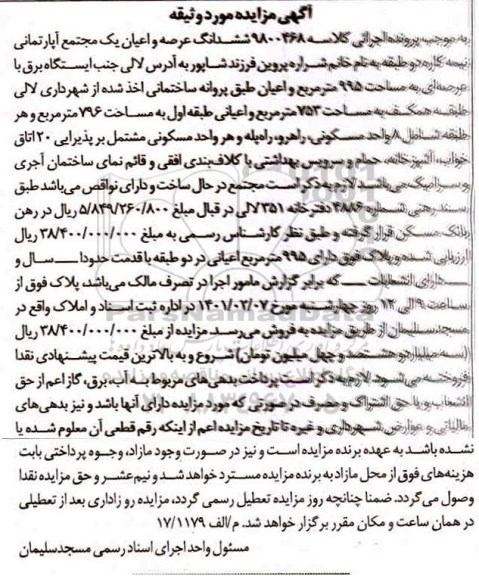 آگهی مزایده مورد وثیقه
به موجب پرونده اجرائی کلاسه ۹۸۰۰۴۶۸ ششدانگ عرصه و اعیان یک مجتمع آپارتمانی
نیمه کاره دو طبقه به نام خانم شراره پروین فرزند شاپور به آدرس لالی جنب ایستگاه برق با
عرصه ای به مساحت ۹۹۵ مترمربع و اعیان طبق پروانه ساختمانی اخذ شده از شهرداری لالی
طبقه همکف به مساحت ۷۵۳ مترمربع و اعیانی طبقه اول به مساحت ۷۹۶ مترمربع و هر
طبقه شامل ۸ واحد مسکونی، راهرو، راه پله و هر واحد مسکونی مشتمل بر پذیرایی ۲۰ اتاق
خواب، آشپزخانه، حمام و سرویس بهداشتی با کلاف بندی افقی و قائم نمای ساختمان آجری
و سرامیک می باشد لازم به ذکر است مجتمع در حال ساخت و دارای نواقص می باشد طبق
سند رهنی شماره ۴۸۸۶ دفترخانه ۳۵۱ لالی در قبال مبلغ ۵/۸۴۹/۲۶۰/۸۰۰ ریال در رهن
بانک مسکن قرار گرفته و طبق نظر کارشناس رسمی به مبلغ ۳۸/۴۰۰/۰۰۰/۰۰۰ ریال
ارزیابی شده و پلاک فوق دارای ۹۹۵ مترمربع اعیانی در دو طبقه با قدمت حدودا ــــ سال و
ــــ دارای انشعابات ــــ که برابر گزارش مامور اجرا در تصرف مالک می باشد، پلاک فوق از
ساعت ۹ الی ۱۲ روز چهارشنبه مورخ ۱۴۰۱/۰۲/۰۷ در اداره ثبت اسناد و املاک واقع در
مسجدسلیمان از طریق مزایده به فروش می رسد مزایده از مبلغ ۳۸/۴۰۰/۰۰۰/۰۰۰ ریال
(سه میلیارد و هشتصد و چهل میلیون تومان) شروع و به بالاترین قیمت پیشنهادی نقدا
فروخته می شود لازم به ذکر است پرداخت بدهی های مربوط به آب، برق، گاز اعم از حق
انشعاب و یا حق اشتراک و مصرف در صورتی که مورد مزایده دارای آنها باشد و نیز بدهی های
مالیاتی و عوارض شهرداری و غیره تا تاریخ مزایده اعم از اینکه رقم قطعی آن معلوم شده یا
نشده باشد به عهده برنده مزایده است و نیز در صورت وجود مازاد، وجوه پرداختی بابت
هزینه های فوق از محل مازاد به برنده مزایده مسترد خواهد شد و نیم عشر و حق مزایده نقدا
وصول می گردد. ضمنا چنانچه روز مزایده تعطیل رسمی گردد، مزایده روز اداری بعد از تعطیلی
در همان ساعت و مکان مقرر برگزار خواهد شد. م/الف ۱۷/۱۱۷۹
مسئول واحد اجرای اسناد رسمی مسجدسلیمان